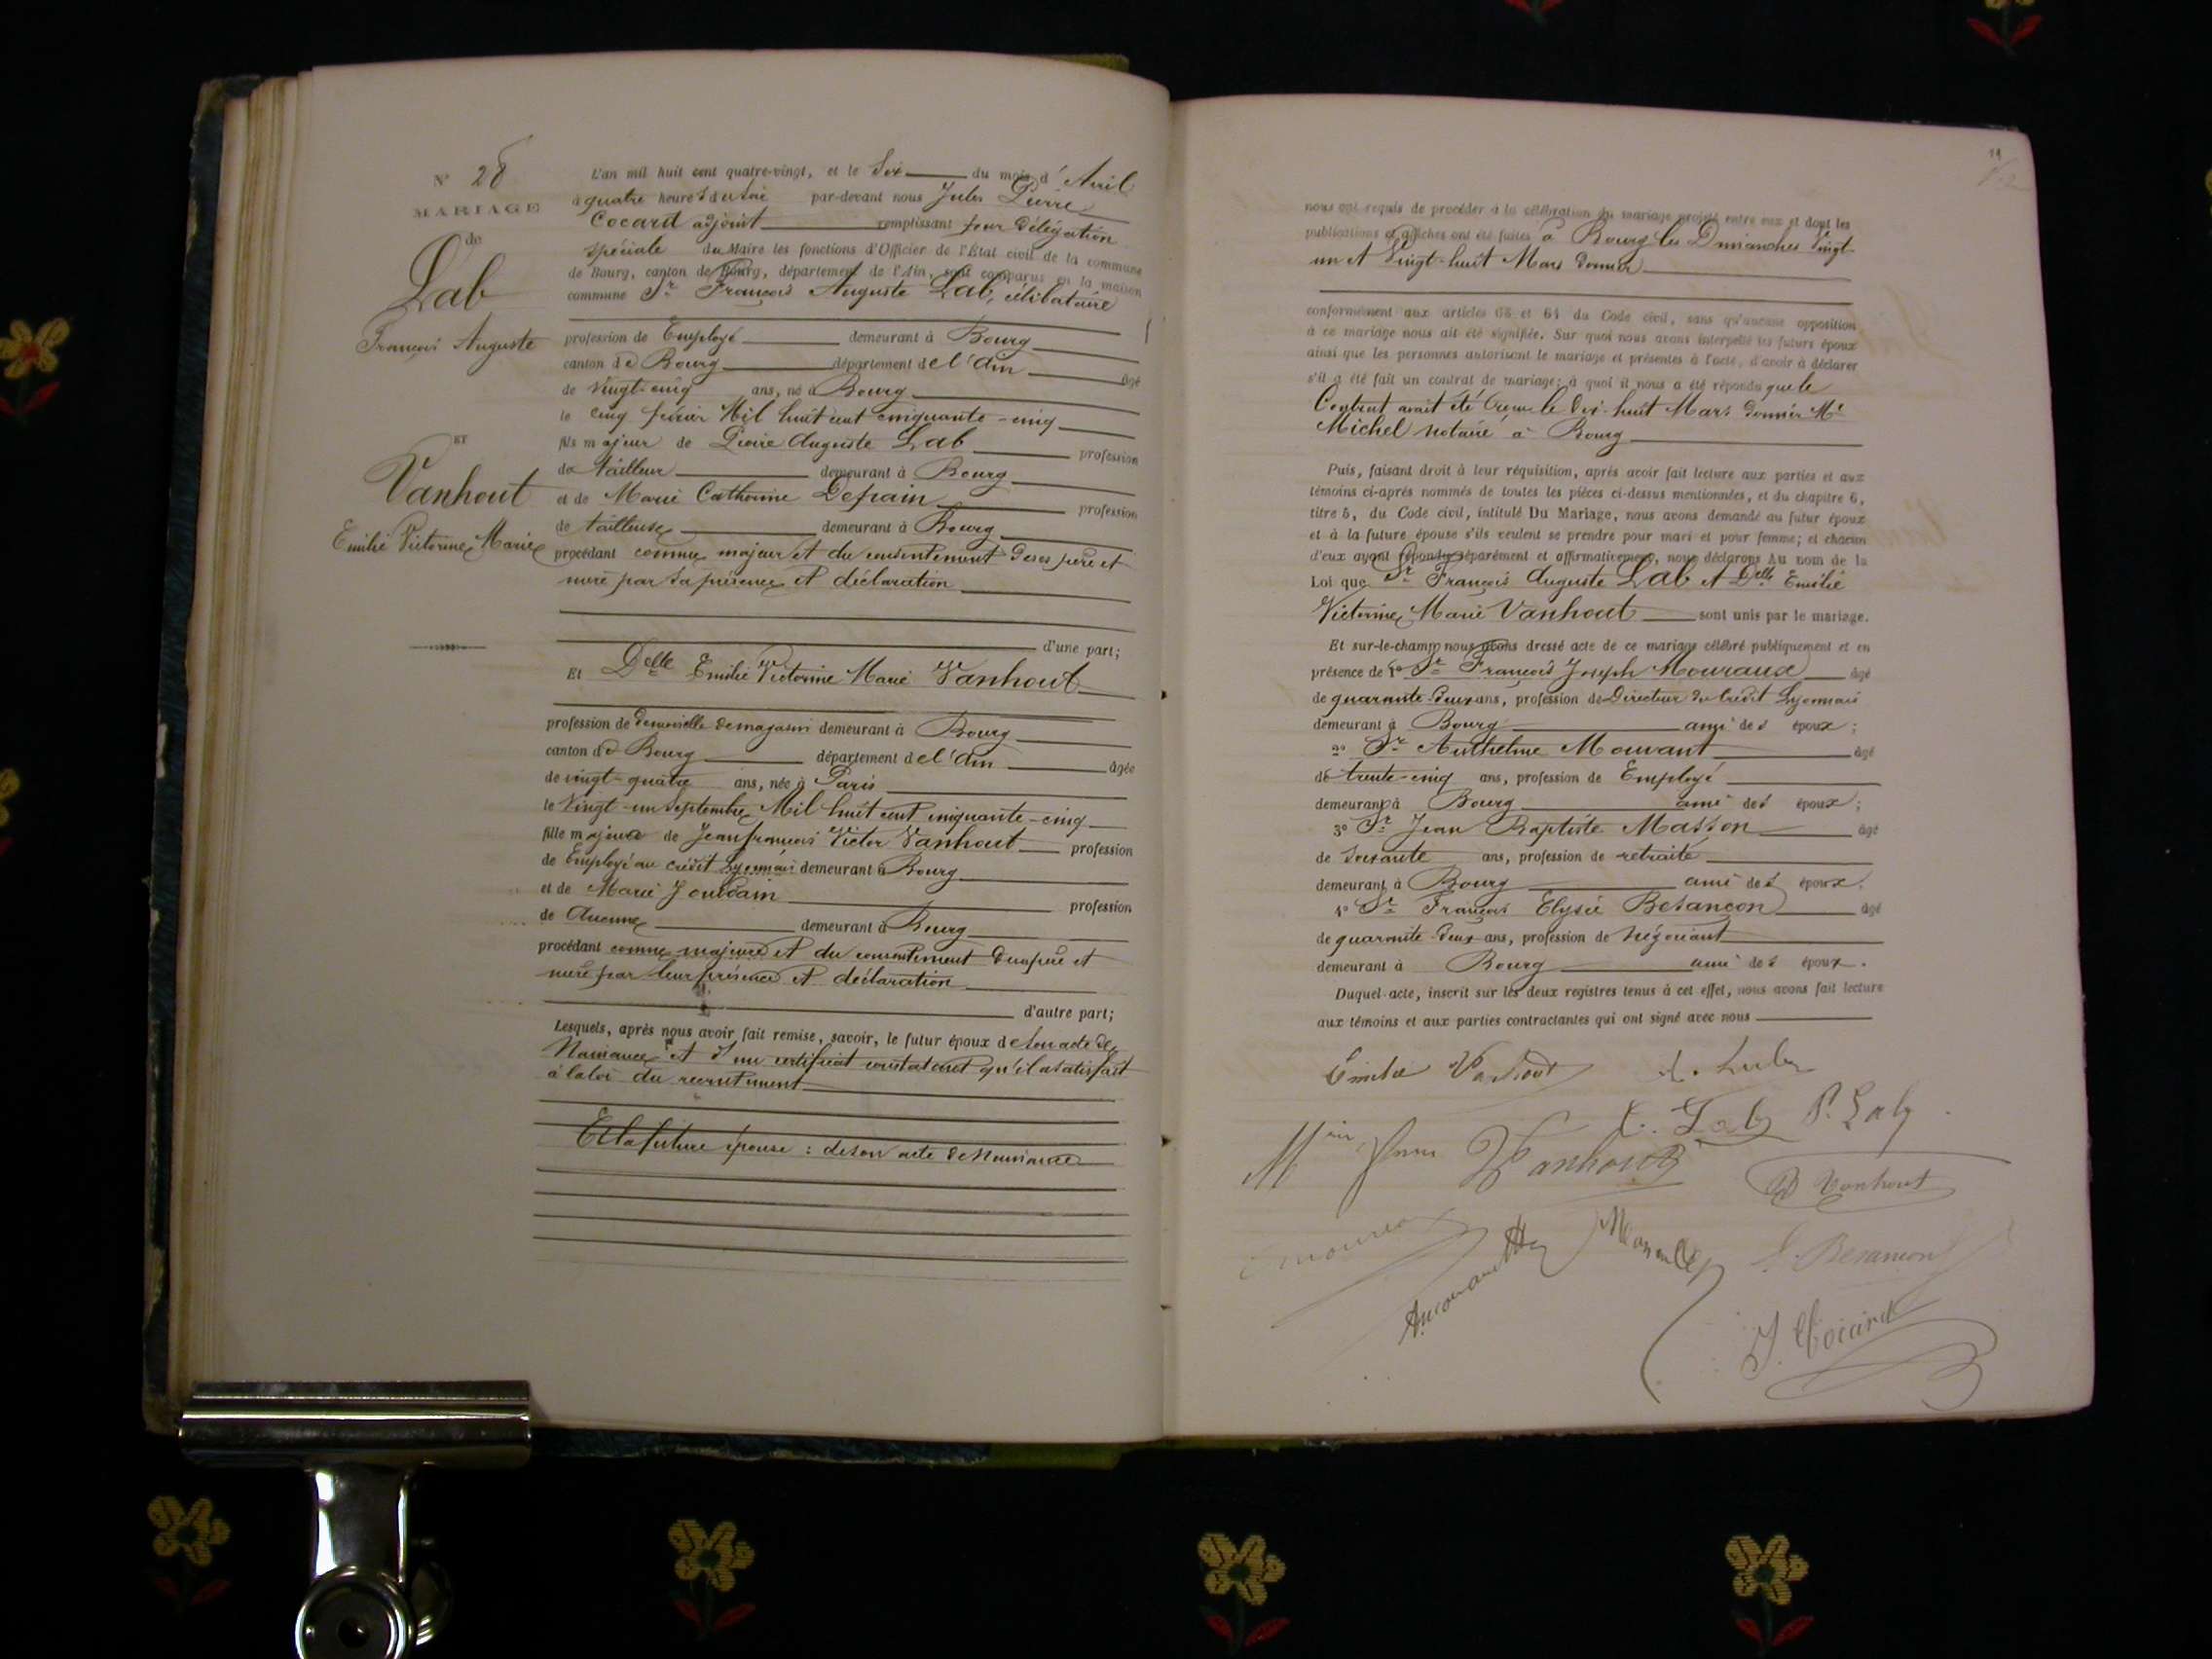 N° 28
MARIAGE
de
Lab
François Auguste
ET
Vanhout
Emilie Victorine Marie
L'an mil huit cent quatre-vingt, et le Six du mois d'Avril
à quatre heures du soir par-devant nous Jules Pierre
Cocard adjoint remplissant par délégation
spéciale du Maire les fonctions d'Officier de l'État civil de la commune
de Bourg, canton de Bourg, département de l'Ain, sont comparus en la maison
commune Sr François Auguste Lab, célibataire
profession de Employé demeurant à Bourg
canton de Bourg département de l'Ain âgé
de vingt-cinq ans, né à Bourg
le cinq février Mil huit cent cinquante-cinq
fils majeur de Pierre Auguste Lab profession
de tailleur demeurant à Bourg
et de Marie Catherine Defrain profession
de tailleuse demeurant à Bourg
procédant comme majeur et du consentement de ses père et
mère par sa présence et déclaration
d'une part;
Et Delle Emilie Victorine Marie Vanhout
profession de demoiselle de magasin demeurant à Bourg
canton de Bourg département de l'Ain âgée
de vingt-quatre ans, née à Paris
le Vingt-un Septembre Mil huit cent cinquante-cinq
fille majeure de Jean françois Victor Vanhout profession
de Employé au crédit Lyonnais demeurant à Bourg
et de Marie Jourdain profession
de Aucune demeurant à Bourg
procédant comme majeure et du consentement de ses père et
mère par leur présence et déclaration
d'autre part;
Lesquels, après nous avoir fait remise, savoir, le futur époux de son acte de
Naissance et d'un certificat constatant qu'il a satisfait
à la loi du recrutement
Et la future épouse : de son acte de Naissance
nous ont requis de procéder à la célébration du mariage projeté entre eux et dont les
publications et affiches ont été faites à Bourg les Dimanches Vingt
un et Vingt-huit Mars dernier
conformément aux articles 63 et 64 du Code civil, sans qu'aucune opposition
à ce mariage nous ait été signifiée. Sur quoi nous avons interpellé les futurs époux
ainsi que les personnes autorisant le mariage et présentes à l'acte, d'avoir à déclarer
s'il a été fait un contrat de mariage; à quoi il nous a été répondu que le
Contrat avait été reçu le dix-huit Mars dernier Me
Michel notaire à Bourg
Puis, faisant droit à leur réquisition, après avoir fait lecture aux parties et aux
témoins ci-après nommés de toutes les pièces ci-dessus mentionnées, et du chapitre 6,
titre 5, du Code civil, intitulé Du Mariage, nous avons demandé au futur époux
et à la future épouse s'ils veulent se prendre pour mari et pour femme; et chacun
d'eux ayant répondu séparément et affirmativement, nous déclarons Au nom de la
Loi que Sr François Auguste Lab et Delle Emilie
Victorine Marie Vanhout sont unis par le mariage.
Et sur-le-champ nous avons dressé acte de ce mariage célébré publiquement et en
présence de 1° Sr François Joseph Mouraux âgé
de quarante-deux ans, profession de Directeur du Crédit Lyonnais
demeurant à Bourg ami des époux;
2° Sr Anthelme Mouvant âgé
de trente-cinq ans, profession de Employé
demeurant à Bourg ami des époux;
3° Sr Jean Baptiste Masson âgé
de soixante ans, profession de retraité
demeurant à Bourg ami des époux.
4° Sr François Elysée Besançon âgé
de quarante-deux ans, profession de Négociant
demeurant à Bourg ami des époux.
Duquel acte, inscrit sur les deux registres tenus à cet effet, nous avons fait lecture
aux témoins et aux parties contractantes qui ont signé avec nous
Emilie Vanhout
C. Lab P. Lab
Vanhout
Vanhout
Besancon
J. Cocard